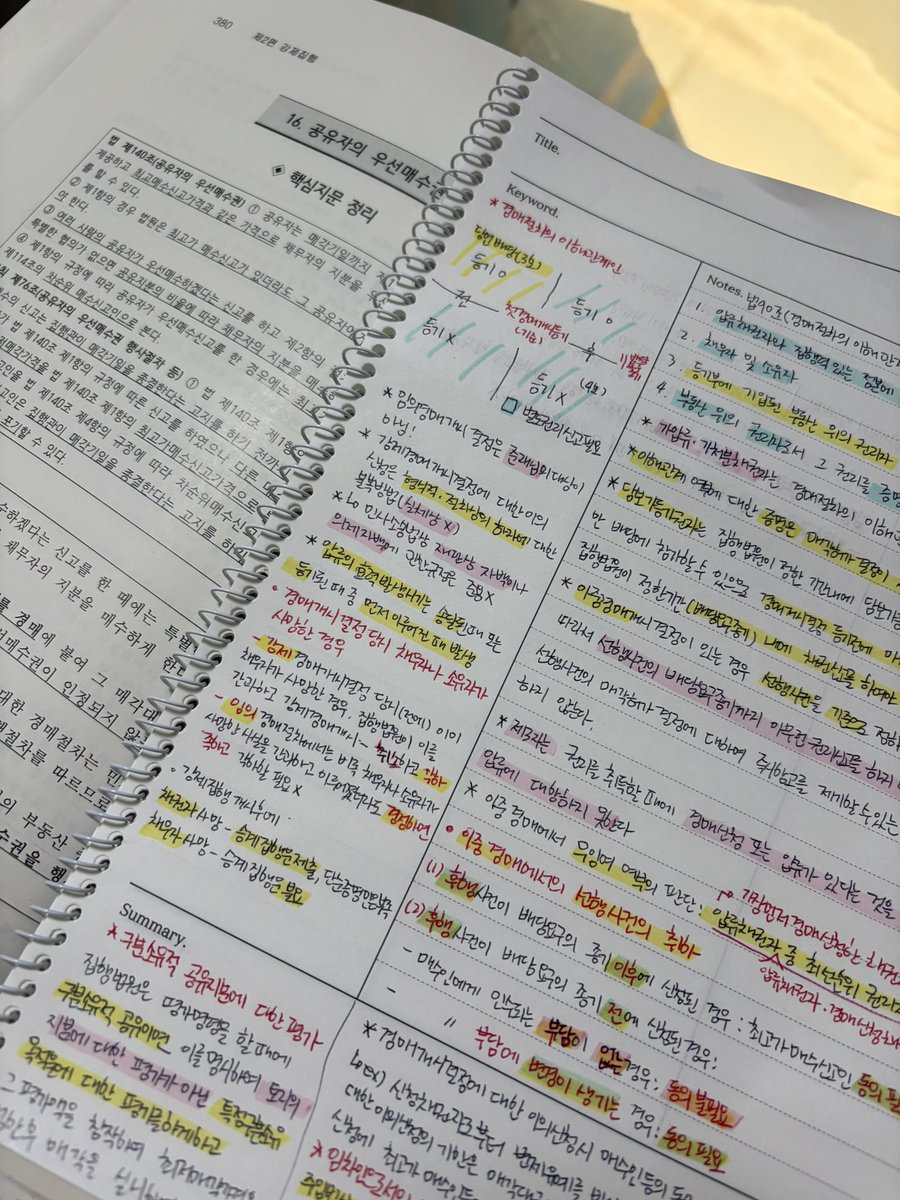 380
제2편 강제집행
16. 공유자의 우선매수
◈ 핵심지문 정리
법 제140조(공유자의 우선매수권) ① 공유자는 매각기일까지
제공하고 최고매수신고가격과 같은 가격으로 채무자의 지분을
를 할 수 있다.
② 제1항의 경우 법원은 최고가 매수신고가 있더라도 그 공유자에
야 한다.
③ 여러 사람의 공유자가 우선매수하겠다는 신고를 하고 제2항의
특별한 협의가 없으면 공유지분의 비율에 따라 채무자의 지분을 매
④ 제1항의 규정에 따라 공유자가 우선매수신고를 한 경우에는 최
제114조의 차순위 매수신고인으로 본다.
칙 제76조(공유자의 우선매수권 행사절차 등) ① 법 제140조 제1항
수의 신고는 집행관이 매각기일을 종결한다는 고지를 하기 전까
가 법 제140조 제1항의 규정에 따른 신고를 하였으나 다른
최저매각가격을 법 제140조 제1항의 최고가매수신고가격으로
법 제140조 제4항의 규정에 따라 차순위매수신
고인은 집행관이 매각기일을 종결한다는 고지를 하
포기할 수 있다.
수하겠다는 신고를 한 때에는 특별
채무자의 지분을 매수하게 한
경매에 붙여 그 매각대
매수권이 인정되지 않
대한 경매절차는 민
절차를 따르므로
의 부동산
매수권을 행
Title.
Keyword.
* 경매절차의 이해관계인
당연배당(3호)
등기 o
등기 o
전
첫경매개시등기
(기입)
후
등기 x
등기 x
(4호)
별도권리신고필요
* 임의경매개시 결정은 준재심의 대상이
아님!
* 강제경매개시결정에 대한 이의
신청은 형식적·절차상의 하자에 대한
불복방법 (실체상 x)
↳ 민사소송법상 재판상 자백이나
의제자백에 관한 규정은 준용 x
* 압류의 효력발생시기는 송달된 때 또는
등기된 때 중 먼저 이루어진 때 발생
• 경매개시결정 당시 채무자나 소유자가
사망한 경우
- 강제 경매개시결정 당시(전에) 이미
채무자가 사망한 경우, 집행법원이 이를
간과하고 강제경매개시 - 취소하고 각하
- 임의 경매절차에서는 비록 채무자나 소유자가
사망한 사실을 간과하고 이루어졌더라도 경정하면
족하고 각하할 필요 x
• 강제집행 개시후에
채권자 사망 - 승계집행문제출,
채무자 사망 - 승계 집행문 불요
Notes. 법90조 (경매절차의 이해관계
1. 압류채권자와 집행력 있는 정본에
2. 채무자 및 소유자
3. 등기부에 기입된 부동산 위의 권리자
4. 부동산 위의 권리자로서 그 권리를 증명
* 가압류·가처분채권자는 경매절차의 이해관
* 이해관계 에 대한 증명은 매각허가 결정이
* 담보가등기권자는 집행법원이 정한 기간내에 담보가등
만 배당에 참가할 수 있으므로 경매개시결정 등기전에
집행법원이 정한기간(배당요구종기) 내에 채권신고를 하여야
* 이중경매개시 결정이 있는 경우 선행사건을 기준으로 정하
따라서 선행사건의 배당요구종기까지 아무런 권리신고를 하지
선행사건의 매각허가 결정에 대하여 즉시항고를 제기할 수 있는
하지 않는다.
* 제3자는 권리를 취득할 때에 경매신청 또는 압류가 있다는 것을
압류에 대항하지 못한다
* 이중 경매에서 무잉여 여부의 판단: 압류채권자 중 최선순위 권리
가장먼저경매신청한 채권
압류채권자·경매신청
• 이중 경매에서의 선행 사건의 취하
(1) 후행사건이 배당요구의 종기 이후에 신청된 경우 : 최고가매수신고인 동의 필
(2) 후행사건이 배당요구의 종기 전에 신청된 경우:
- 매수인에게 인수되는 부담이 없는 경우: 동의 불필요
- 〃 부담에 변경이 생기는 경우: 동의 필요
Summary.
* 구분소유적 공유지분에 대한 평가
집행법원은 평가명령을 할 때에
구분소유적 공유이면 이를 명시하여 토지의
지분에 대한 평가가 아닌 특정구분소유
목적물에 대한 평가를 하게하고
그 평가액을 참작하여 최저매각가격을
매각을
* 경매개시결정에 대한 이의신청시 매수인등의 동
대한 이의신청의 기한은 매각대금
신청에 최고가 매수인등
* 임차인으로서의